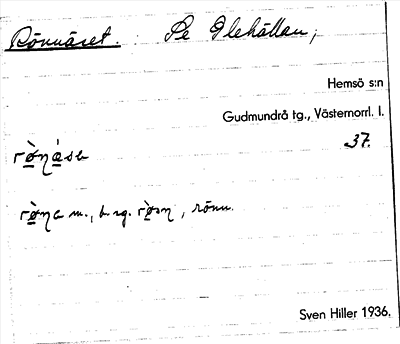 Rönnäset. Se Olehällan;
Hemsö s:n
Gudmundrå tg., Västernorrl. l.
37.
m., b. sg. , rönn.
Sven Hiller 1936.